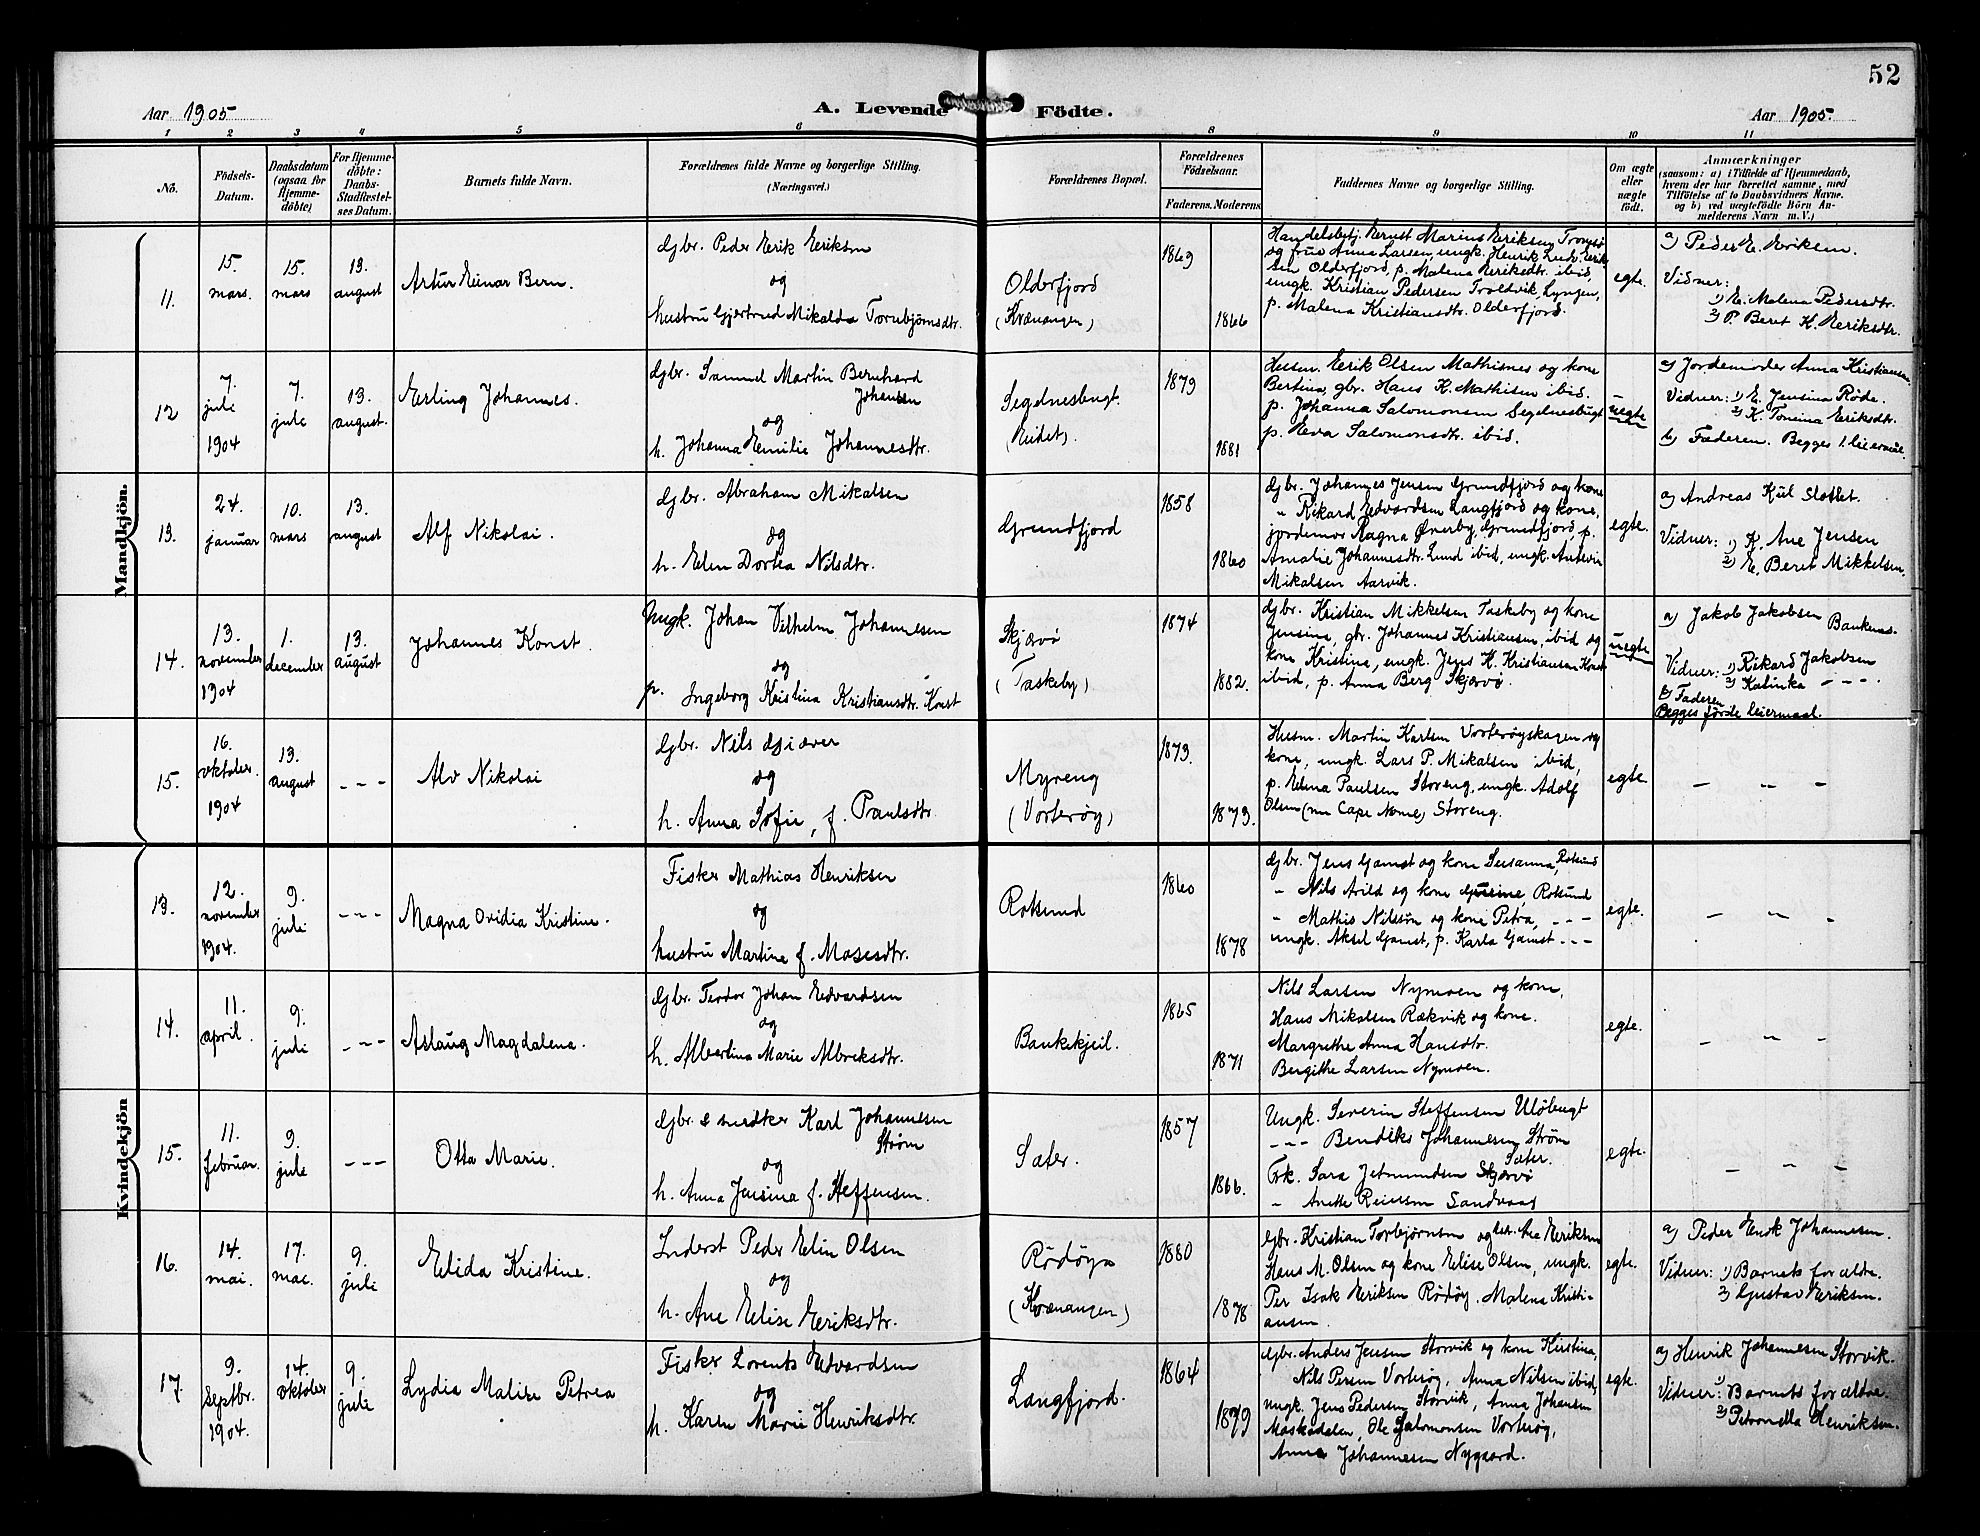 52
Aar 1905
A. Levende Födte.
Aar 1905.
1 2 3 4 5 6 8 9 10 11
No.
Födsels-
Datum.
Daabsdatum
(ogsaa for
Hjemme-
döbte)
For Hjemme-
döbte:
Daabs-
Stadfæstel-
ses Datum.
Barnets fulde Navn.
Forældrenes fulde Navne og borgerlige Stilling.
(Næringsvei.)
Forældrenes Bopæl.
Forældrenes
Födselsaar.
Faderens. Moderens.
Faddernes Navne og borgerlige Stilling.
Om ægte
eller
uægte
födt.
Anmærkninger
(saasom: a) i Tilfælde af Hjemmedaab,
hvem der har forrettet samme, med
Tilföielse af to Daabsvidners Navne.
og b) ved uægtefödte Börn An-
melderens Navn m. V.)
Mandkjön.
11.
15.
mars.
15.
mars
13.
august
Artur Einar Bern.
Gbr. Peder Erik Eriksen
og
hustru Gjertrud Mikalda Tornbjørnsdtr.
Olderfjord
(Kvænangen)
1869
1866
Handelsbetj. Ernst Marius Eriksen Tromsø
og frue Anna Larsen, ungk. Henrik Ludv. Erik-
sen Olderfjord, p. Malena Eriksdtr. ibid,
ungk. Kristian Pedersen Troldvik, Lyngen,
p. Malena Kristiansdtr. Olderfjord.
egte.
a) Peder E. Eriksen.
Vidner:
1) E. Malena Pedersdtr.
2) P. Beret K. Eriksdtr.
12
7.
juli
1904
7.
juli
13.
august.
Erling Johannes.
Gbr. Samuel Martin Bernhard
Johansen
og
h. Johanna Emilie Johannesdtr.
Segelnesbugt.
(Eidet).
1879
1881
Husm. Erik Olsen Mathisnes og kone
Bertina, gbr. Hans K. Mathisen ibid.
p. Johanna Salomonsen Segelnesbugt
p. Eva Salomonsdtr. ibid.
uegte
a) Jordemoder Anna Kristiansen
Vidner: 1) E. Jensina Røde.
2) K. Tomina Eriksdtr.
b) Faderen. Begges 1. leiermaal.
13.
24.
januar
10.
mars
13.
august
Alf Nikolai.
Gbr. Abraham Mikalsen
og
h. Elen Dortea Nilsdtr.
Grundfjord
1858
1860
Gbr. Johannes Jensen Grundfjord og kone
" Rikard Edvardsen Langfjord og kone,
jordemor Ragna Øverby, Grundfjord, p.
Amalie Johannesdtr. Lund ibid, ungk.
Mikalsen Aarvik.
egte.
a) Andreas Kiil Slottet.
Vidner: 1) K. Ane Jensen
2) E. Beret Mikkelsen.
14.
13.
november
1904
1.
december
13.
august
Johannes Konst.
Ungk. Johan Vilhelm Johannesen
og
p. Ingeborg Kristina Kristiansdtr. Konst
Skjærvö
(Taskeby)
1874
1882.
Gbr. Kristian Mikkelsen Taskeby og kone
Jensine, gbr. Johannes Kristiansen, ibid og
kone Kristine, ungk. Jens K. Kristiansen Konst
ibid, p. Anna Berg Skjærvö.
uegte
a) Jakob Jakobsen
Vidner: 1) Rikard Jakobsen
2) Kalinka - - -.
b) Faderen
Begges förste leiermaal.
15.
16.
oktober.
1904
13.
august
- - -
Alv Nikolai
Gbr. Nils Gjæver
og
h. Anna Sofie, f. Paulsdtr.
Myreng
(Vorterøy)
1873.
1873.
Husm. Martin Karlsen Vorterøyskagen og
kone, ungk. Lars P. Mikalsen ibid,
p. Edena Paulsen Storeng, ungk. Adolf
Olsen (nu Cape Nome) Storeng.
egte.
- " -
Kvindekjön
13.
12.
november
1904.
9.
juli
- - -
Magna Ovidia Kristine.
Fisker Mathias Henriksen
og
hustru Martine f. Mosesdtr.
Rotsund
1860
1878
Gbr. Jens Gamst og kone Susanna, Rotsund
" Nils Arild og kone Rotsund
" Mathis Nilssøn og kone Petra, - - -
ungk. Aksel Gamst, p. Karla Gamst - - -
egte.
- " -
14.
11.
april.
9.
juli
- - -
Aslaug Magdalena.
Gbr. Teodor Johan Edvardsen
og
h. Albertina Marie Albreksdtr.
Bankekjeil.
1865
1871
Nils Larsen Nymoen og kone,
Hans Mikalsen Rækvik og kone.
Margrethe Anna Hansdtr.
Bergithe Larsen Nymoen.
egte.
- " -
15.
11.
februar.
9.
juli
- - -
Otta Marie.
Gbr. & snedker Karl Johannesen
Strøm
og
h. Anna Jensina f. Steffensen.
Sæter.
1857
1866.
Ungk. Severin Steffensen Uløbugt
- - - Bendiks Johannesen Strøm
Sæter.
Frk. Sara Jetmundsen Skjærvö
" Anette Reiersen Sandvaag
egte.
- " -
16.
14.
mai.
17.
mai.
9.
juli
Elida Kristine.
Inderst Peder Elin Olsen
og
h. Ane Elise Eriksdtr.
Rödöya
(Kvænangen)
1880
1878
Gbr. Kristian Torbjørnsen og Ane Eriksen
Hans M. Olsen og kone Elise Olsen, ungk.
Per Isak Eriksen Rödöy. Malena Kristi-
ansen.
egte.
a) Peder Enok Johannesen.
Vidner: 1) Barnets forældre.
2) Gustav Eriksen.
17.
9.
Septbr.
1904.
14.
oktober
9.
juli
Lydia Malise Petrea
Fisker Lorents Edvardsen
og
h. Karen Marie Henriksdtr.
Langfjord.
1864
1879
Gbr. Anders Jensen Storvik og kone Kirstina,
Nils Persen Vorterøy, Anna Nilsen ibid,
ungk. Jens Pedersen Storvik, Anna Johansen
Maskedalen, Ole Salomonsen Vorterøy,
Anna Johannesen Nygaard.
egte.
a) Henrik Johannesen Storvik.
Vidner: 1) Barnets forældre.
2) Petronella Henriksen.